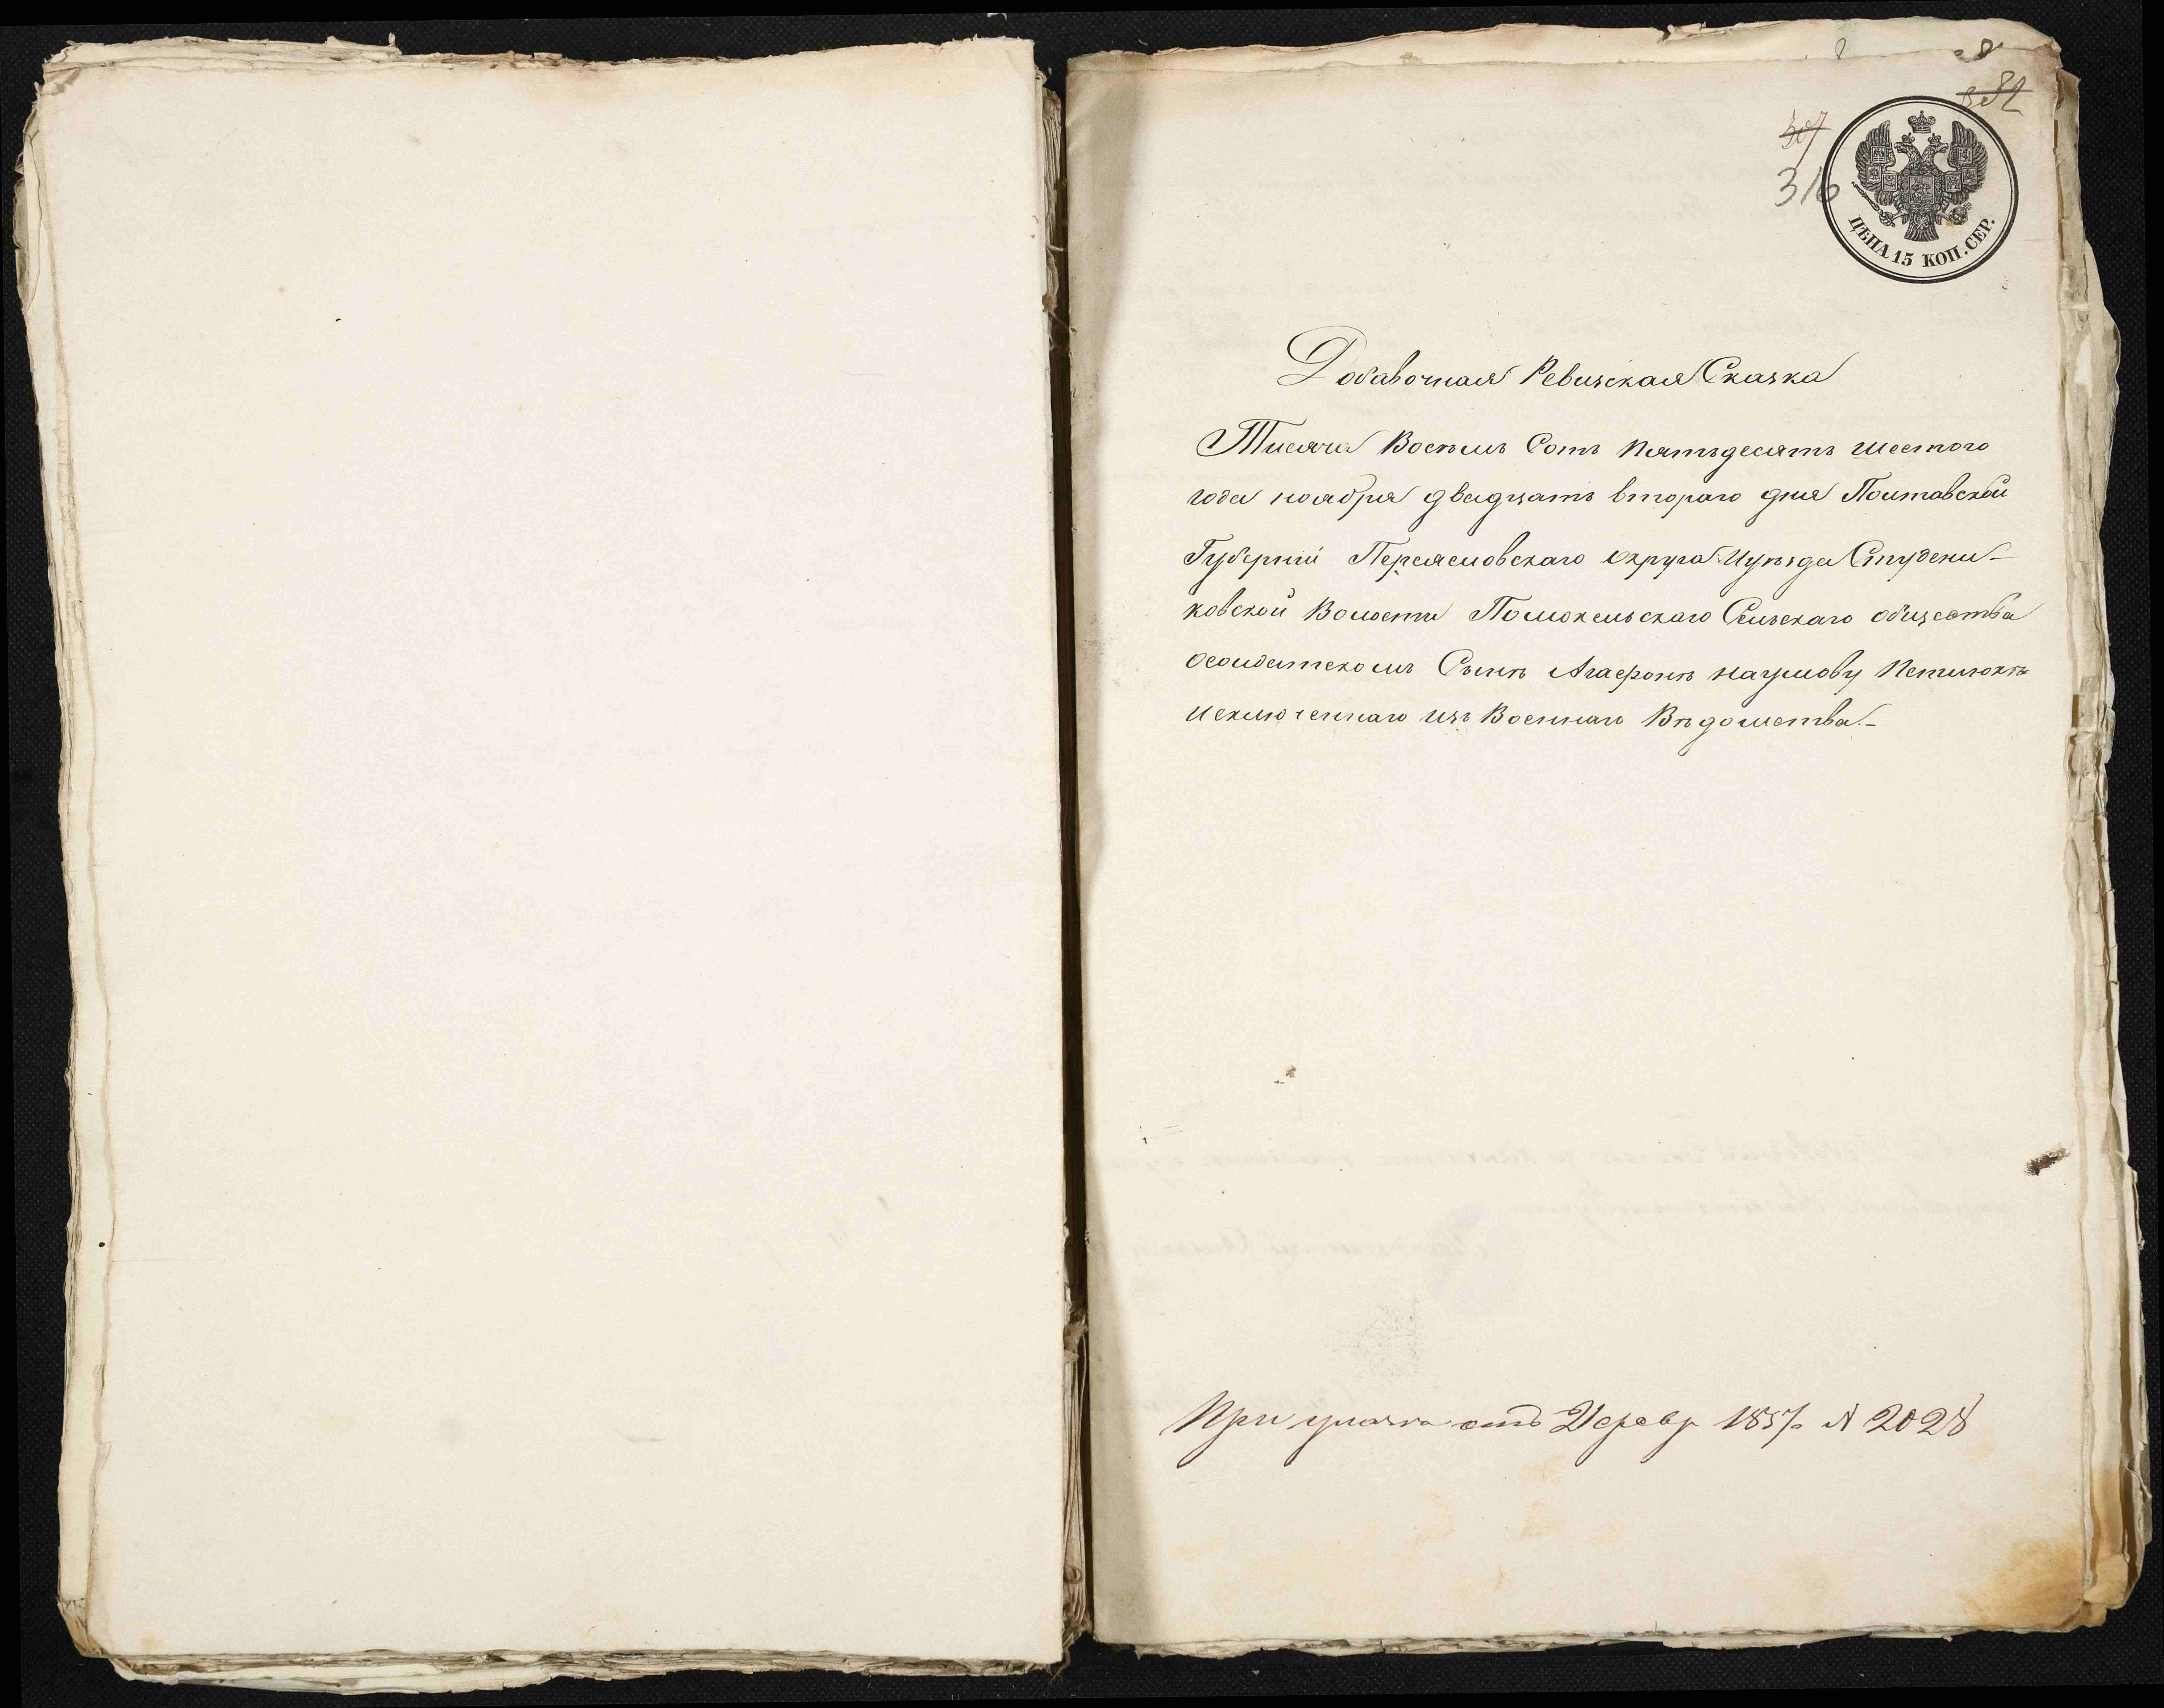 8 8
882
307
316
ЦѢНА 15 КОП. СЕР.
Добавочная Ревизская Сказка
Тисяча Восемь Сотъ пятьдесятъ шестого
года ноября двадцать втораго дня Полтавской
Губерніи Переяславскаго округа и уѣзда Студени-
ковской Волости Помокельскаго Сельскаго общества
о солдатскомъ Сынѣ Агафонѣ Наумову Петлюкѣ
исключеннаго изъ Военнаго Вѣдомства.-
При указѣ отъ 2 февр 1857 г. № 2028